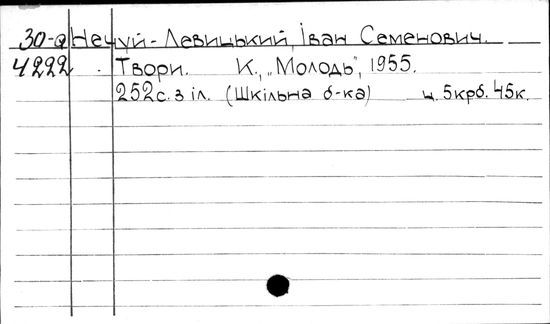 30-а Нечуй-Левицький, Іван Семенович.
4222 Твори. К., „Молодь", 1955.
252с. з іл. (Шкільна б-ка) ц. 5крб. 45к.